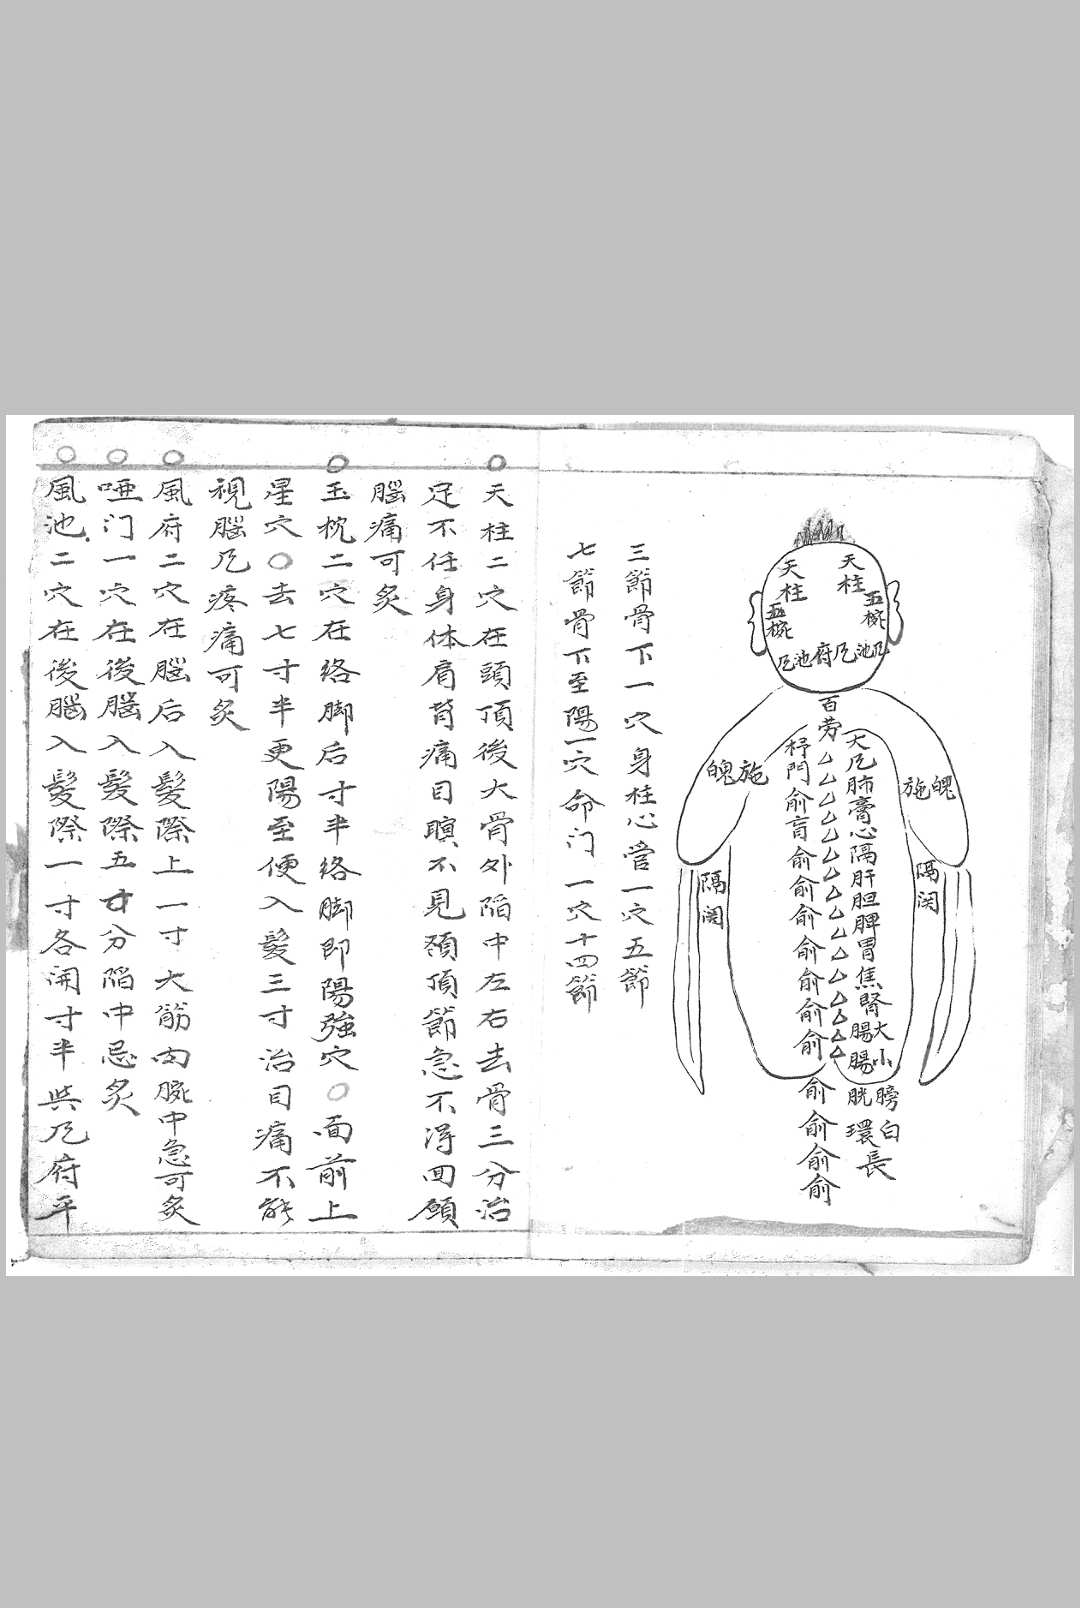 天柱
五椀
天柱
五椀
凡池府凡池凡
百劳
大凡肺膏心隔肝胆脾胃焦腎大小
腸腸
膀胱
白環
長
杼門俞肓俞俞俞俞俞俞俞俞俞俞俞
魄施
施魄
隔関
隔関
三節骨下一穴身柱心管一穴五節
七節骨下至陽一穴命门一穴十四節
○天柱二穴在頭頂後大骨外陷中左右去骨三分治
足不任身体肩背痛目瞑不見頚頂節急不得回顧
腦痛可炙
○玉枕二穴在络脚后寸半络脚即陽強穴○面前上
星穴○去七寸半更陽至便入髮三寸治目痛不能
視腦凡疼痛可炙
○風府二穴在腦后入髮際上一寸大筋肉腕中急可炙
○哑门一穴在後腦入髮際五寸分陷中忌炙
○風池二穴在後腦入髮際一寸各闲寸半㭰凡府平